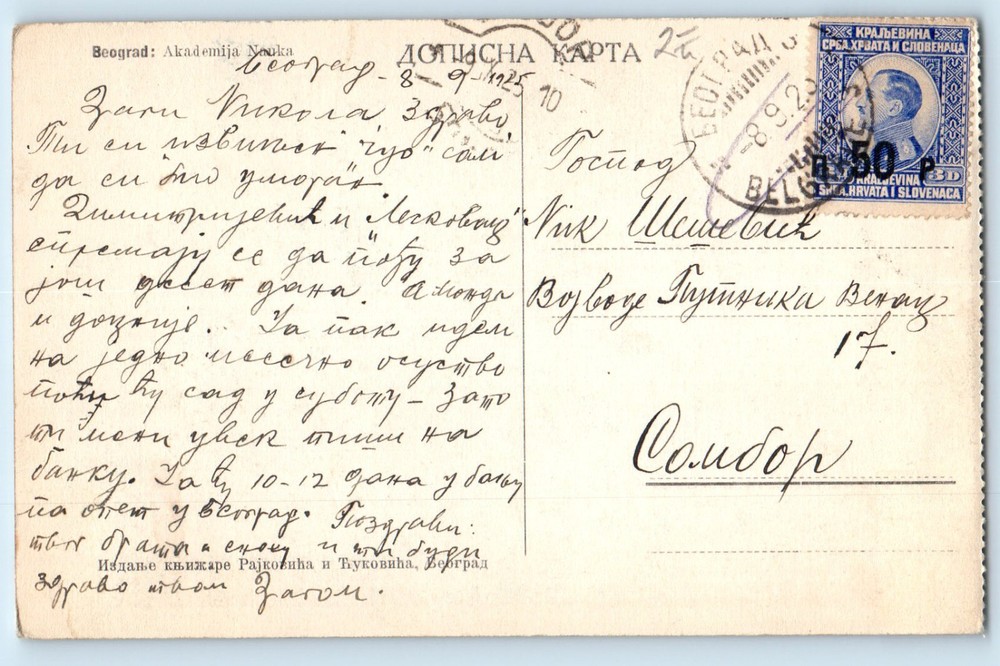 Beograd: Akademija Nauka
ДОПИСНА КАРТА
Београд - 8 - 9 - 1925
Никола Здраво
Ти си
да си био уморан.
Димитријевић и Лесковац
спремају се да пођу за
још десет дана. А можда
и доцније. Ја пак идем
на једно месечно осуство
поћи ћу сад у суботу - Зато
ти мени увек пиши на
банку. Ја ћу 10-12 дана у бању
па опет у Београд. Поздрави:
твог брата и снају и ти буди
здраво твом
Издање књижаре Рајковића и Ћуковића, Београд
Господ
Ник
Војводе Путника Венац
17.
Сомбор
КРАЉЕВИНА
СРБА, ХРВАТА И СЛОВЕНАЦА
П 50 Р
3D
KRALJEVINA
SRBA, HRVATA I SLOVENACA
БЕОГРАД 3
-8.9.25
BELGRADE 3
10